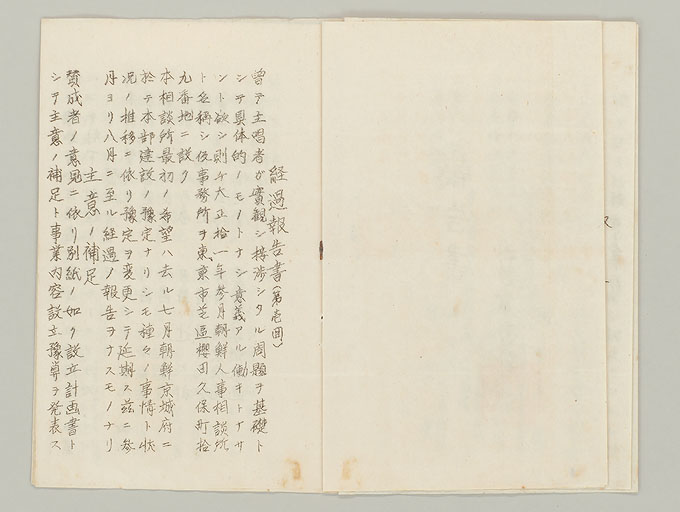 経過報告書(第壱回)
曾テ主唱者ガ實観シ接渉シタル問題ヲ基礎ト
シテ具体的ノモノトナシ意義アル働キトナサ
ント欲シ則チ大正拾一年参月朝鮮人事相談所
ト名稱シ仮事務所ヲ東京市芝區櫻田久保町拾
九番地ニ設ク
本相談所最初ノ希望ハ去ル七月朝鮮京城府ニ
於テ本部建設ノ豫定ナリシモ種々ノ事情ト状
况ノ推移ニ依リ豫定ヲ変更シテ延期ス茲ニ参
月ヨリ八月ニ至ル経過ノ報告ヲナスモノナリ
主意ノ補足
賛成者ノ意見ニ依リ別紙ノ如ク設立計画書ト
シテ主意ノ補足ト事業内容設立豫算ヲ発表ス